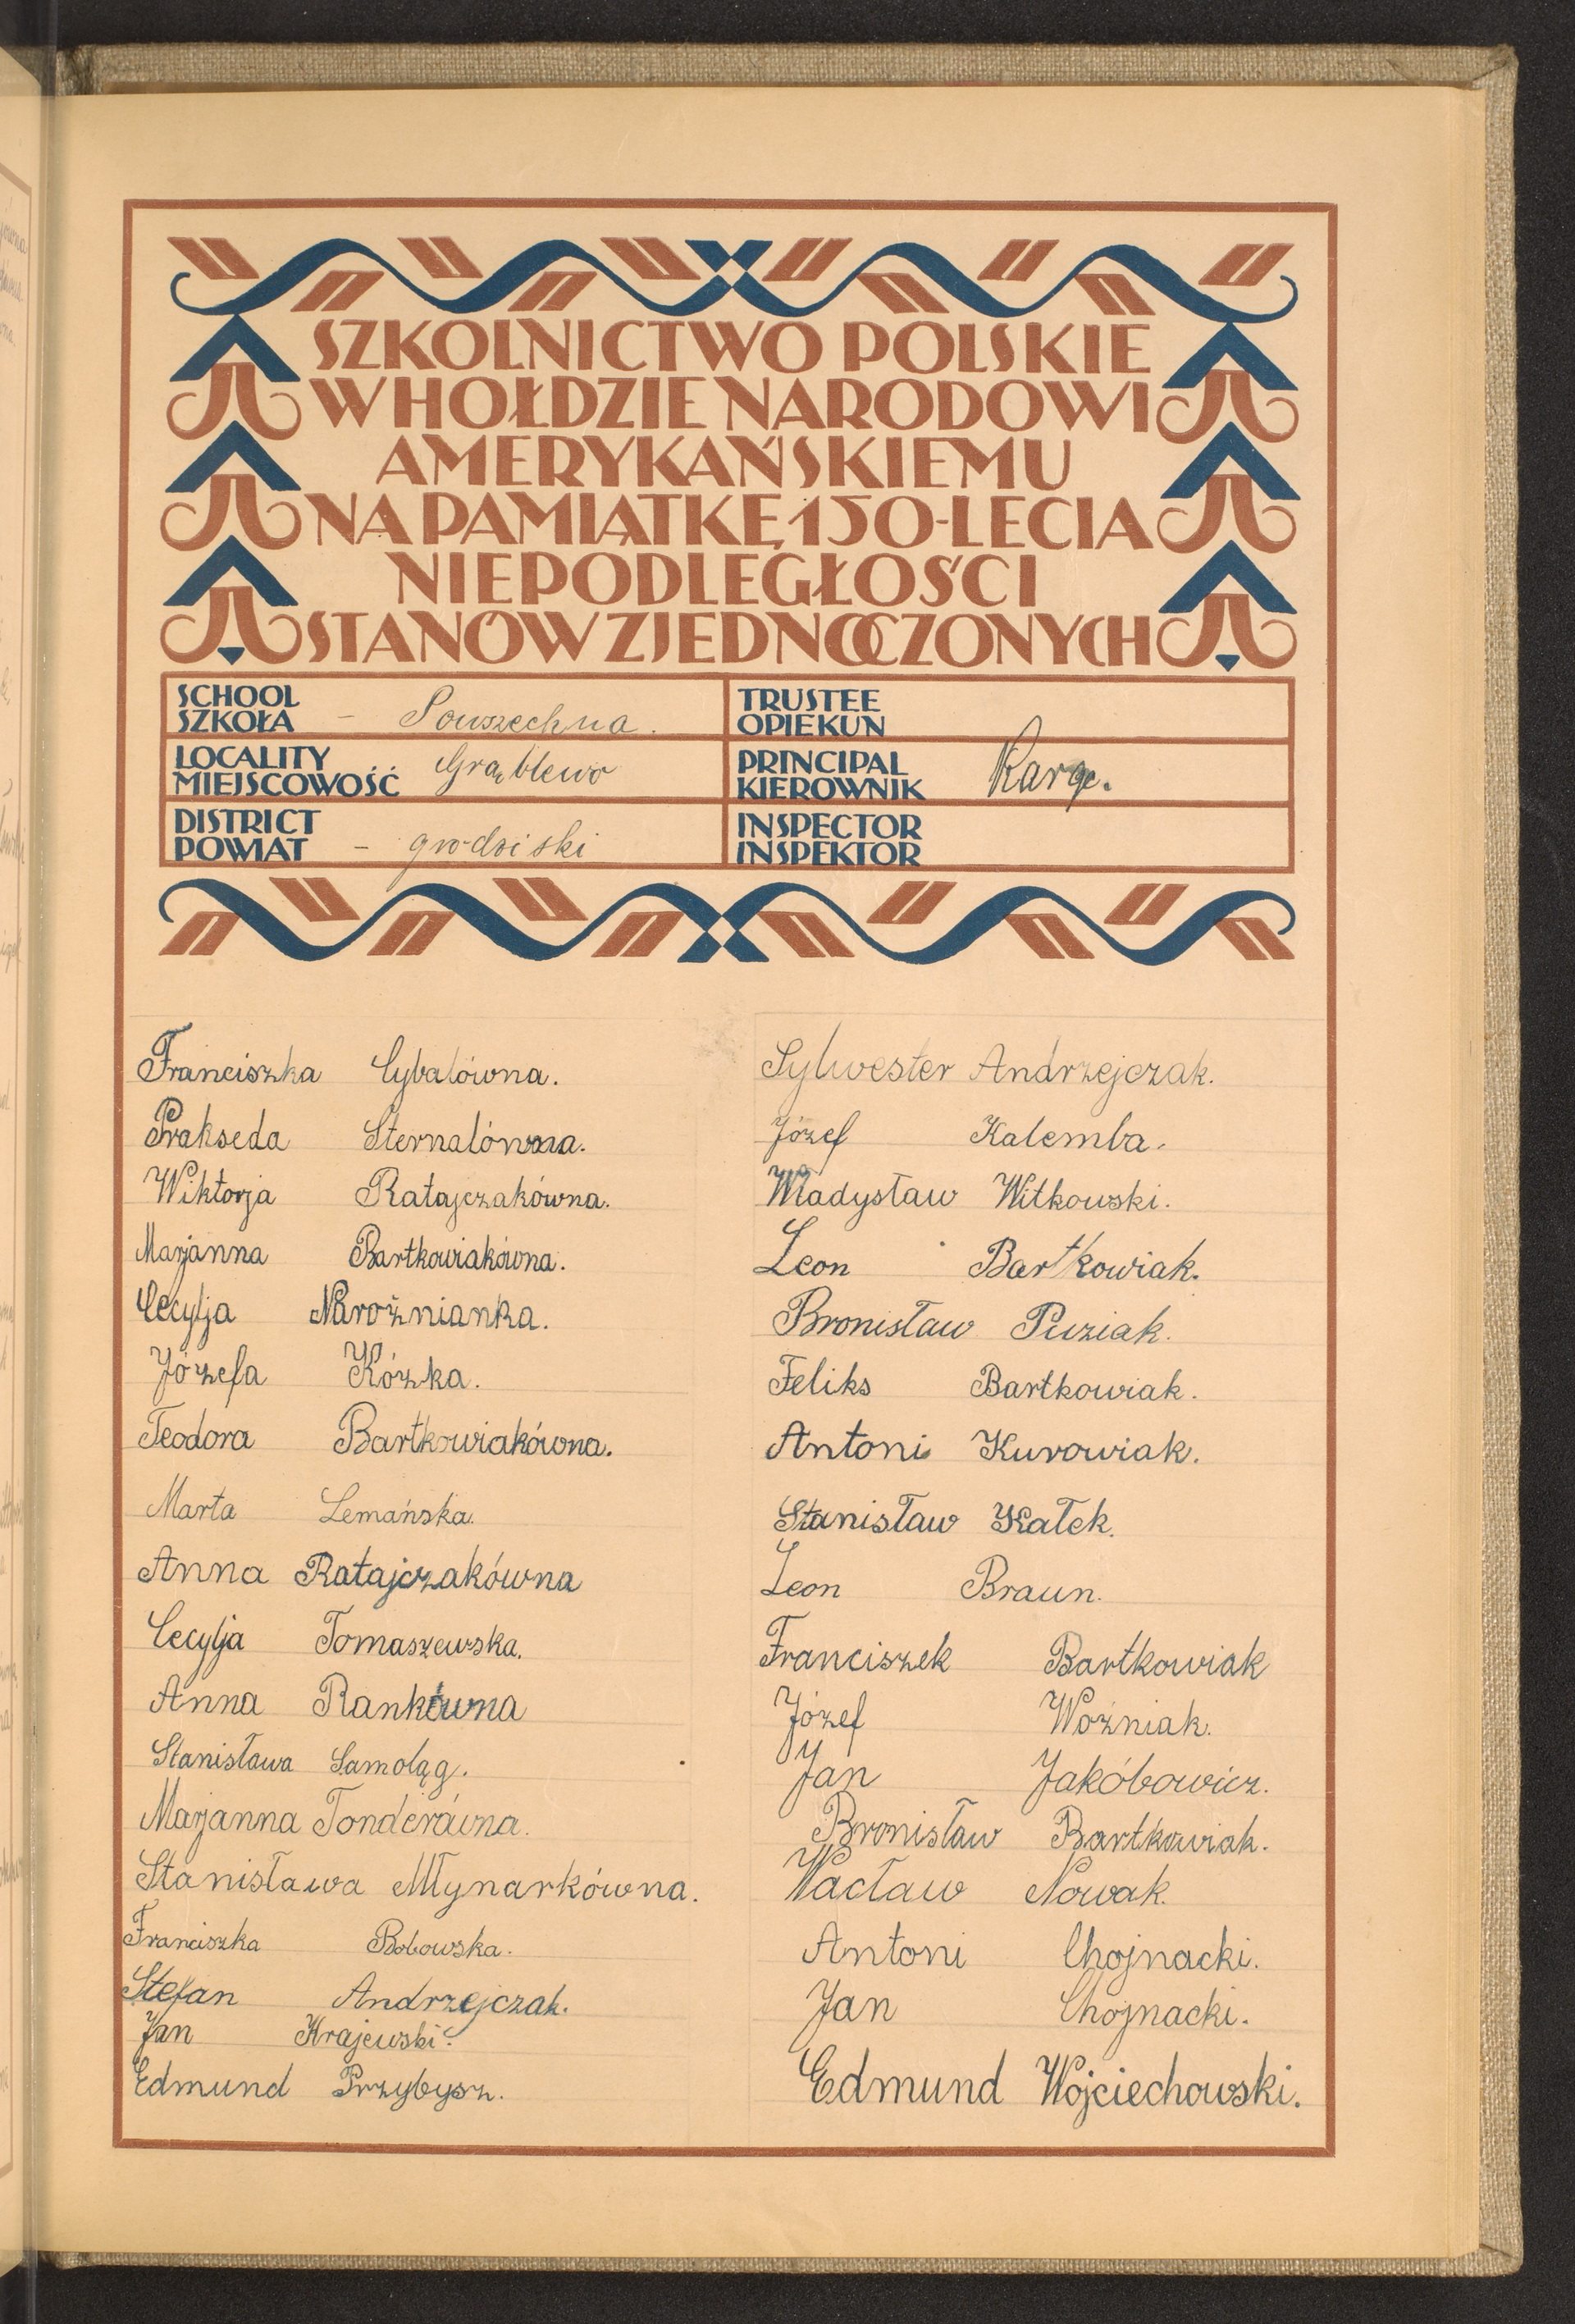 SZKOLNICTWO POLSKIE
W HOŁDZIE NARODOWI
AMERYKAŃSKIEMU
NA PAMIĄTKĘ 150-LECIA
NIEPODLEGŁOŚCI
STANÓW ZJEDNOCZONYCH
SCHOOL
SZKOŁA - Powszechna.
LOCALITY
MIEJSCOWOŚĆ Grąblewo
DISTRICT
POWIAT - grodziski
TRUSTEE
OPIEKUN
PRINCIPAL
KIEROWNIK Karge.
INSPECTOR
INSPEKTOR
Franciszka Cybalówna.
Prakseda Sternalówna.
Wiktorja Ratajczakówna.
Marjanna Bartkowiakówna.
Cecylja Narożnianka.
Józefa Kózka.
Teodora Bartkowiakówna.
Marta Lemańska.
Anna Ratajczakówna
Cecylja Tomaszewska.
Anna Rankówna
Stanisława Samoląg.
Marjanna Tonderówna.
Stanisława Młynarkówna.
Franciszka Bobowska.
Stefan Andrzejczak.
Jan Krajewski.
Edmund Przybysz.
Sylwester Andrzejczak.
Józef Kalemba.
Władysław Witkowski.
Leon Bartkowiak.
Bronisław Puziak.
Feliks Bartkowiak.
Antoni Kurowiak.
Stanisław Kałek.
Leon Braun.
Franciszek Bartkowiak
Józef Woźniak.
Jan Jakóbowicz.
Bronisław Bartkowiak.
Wacław Nowak.
Antoni Chojnacki.
Jan Chojnacki.
Edmund Wojciechowski.